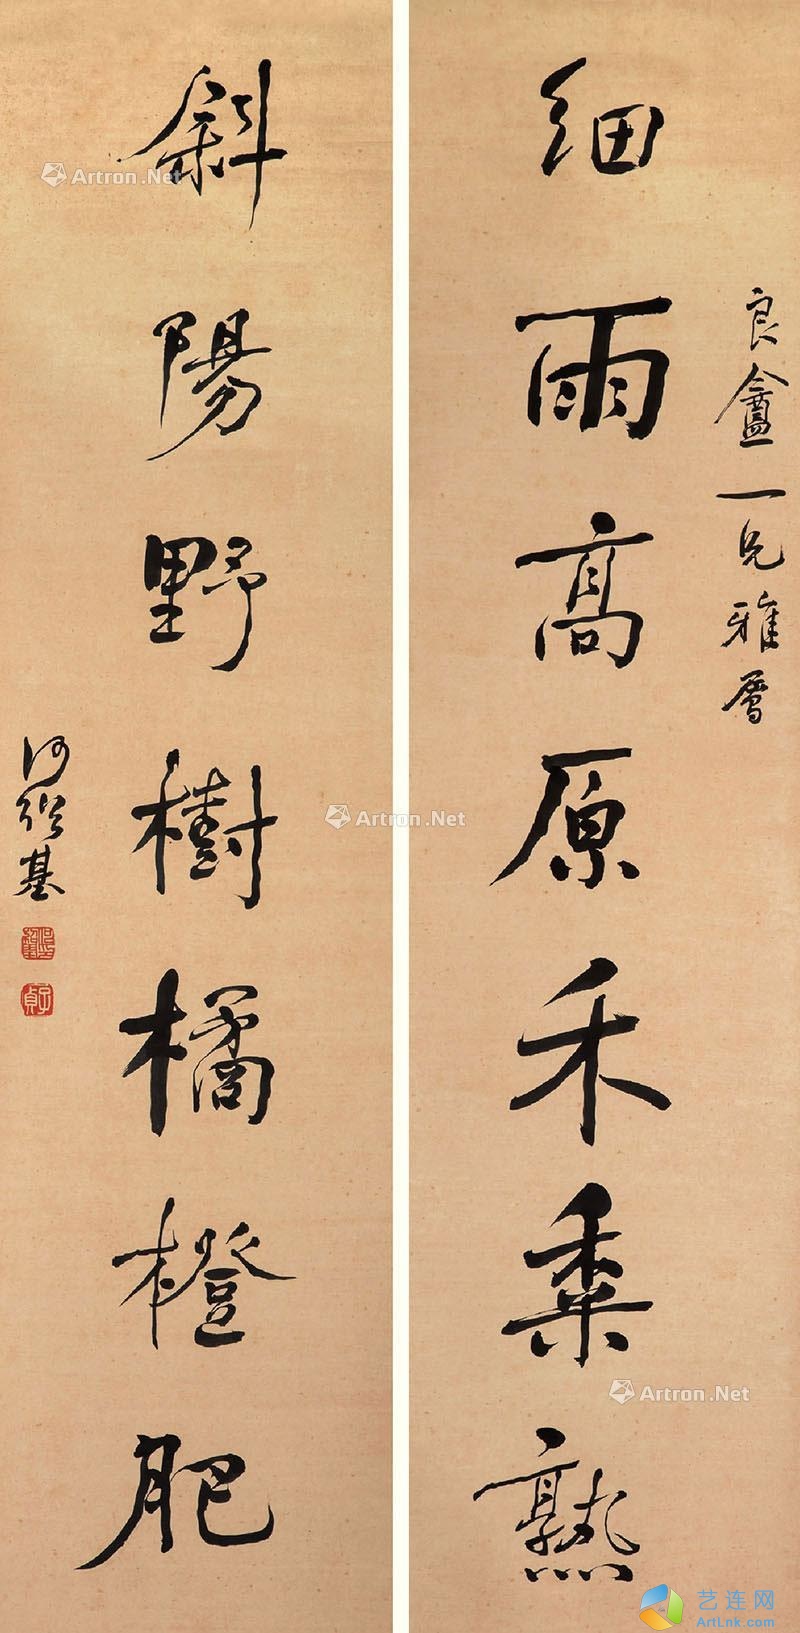 良盦一兄雅屬
細雨高原禾黍熟
斜陽野樹橘橙肥
何紹基
子貞
Artron.Net
Artron.Net
Artron.Net
艺连网
ArtLnk.com